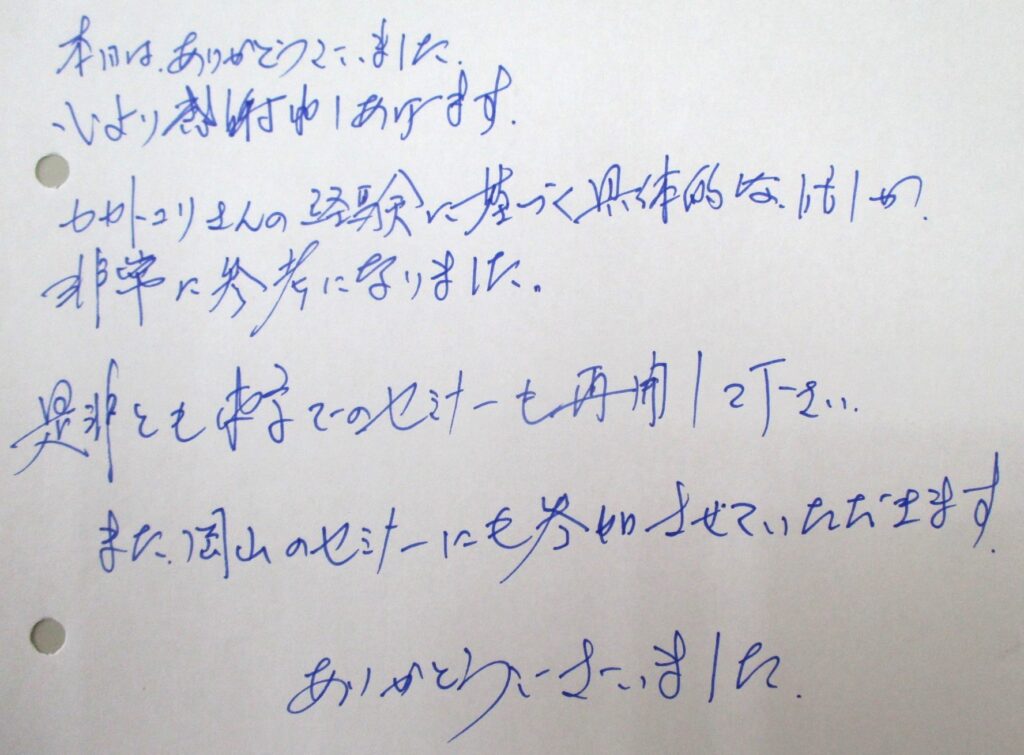 本日は、ありがとうございました。
心より感謝申しあげます。
セカトユリさんの経験に基づく具体的な、話が、
非常に参考になりました。
是非とも東京でのセミナーも再開して下さい。
また、岡山のセミナーにも参加させていただきます。
ありがとうございました。